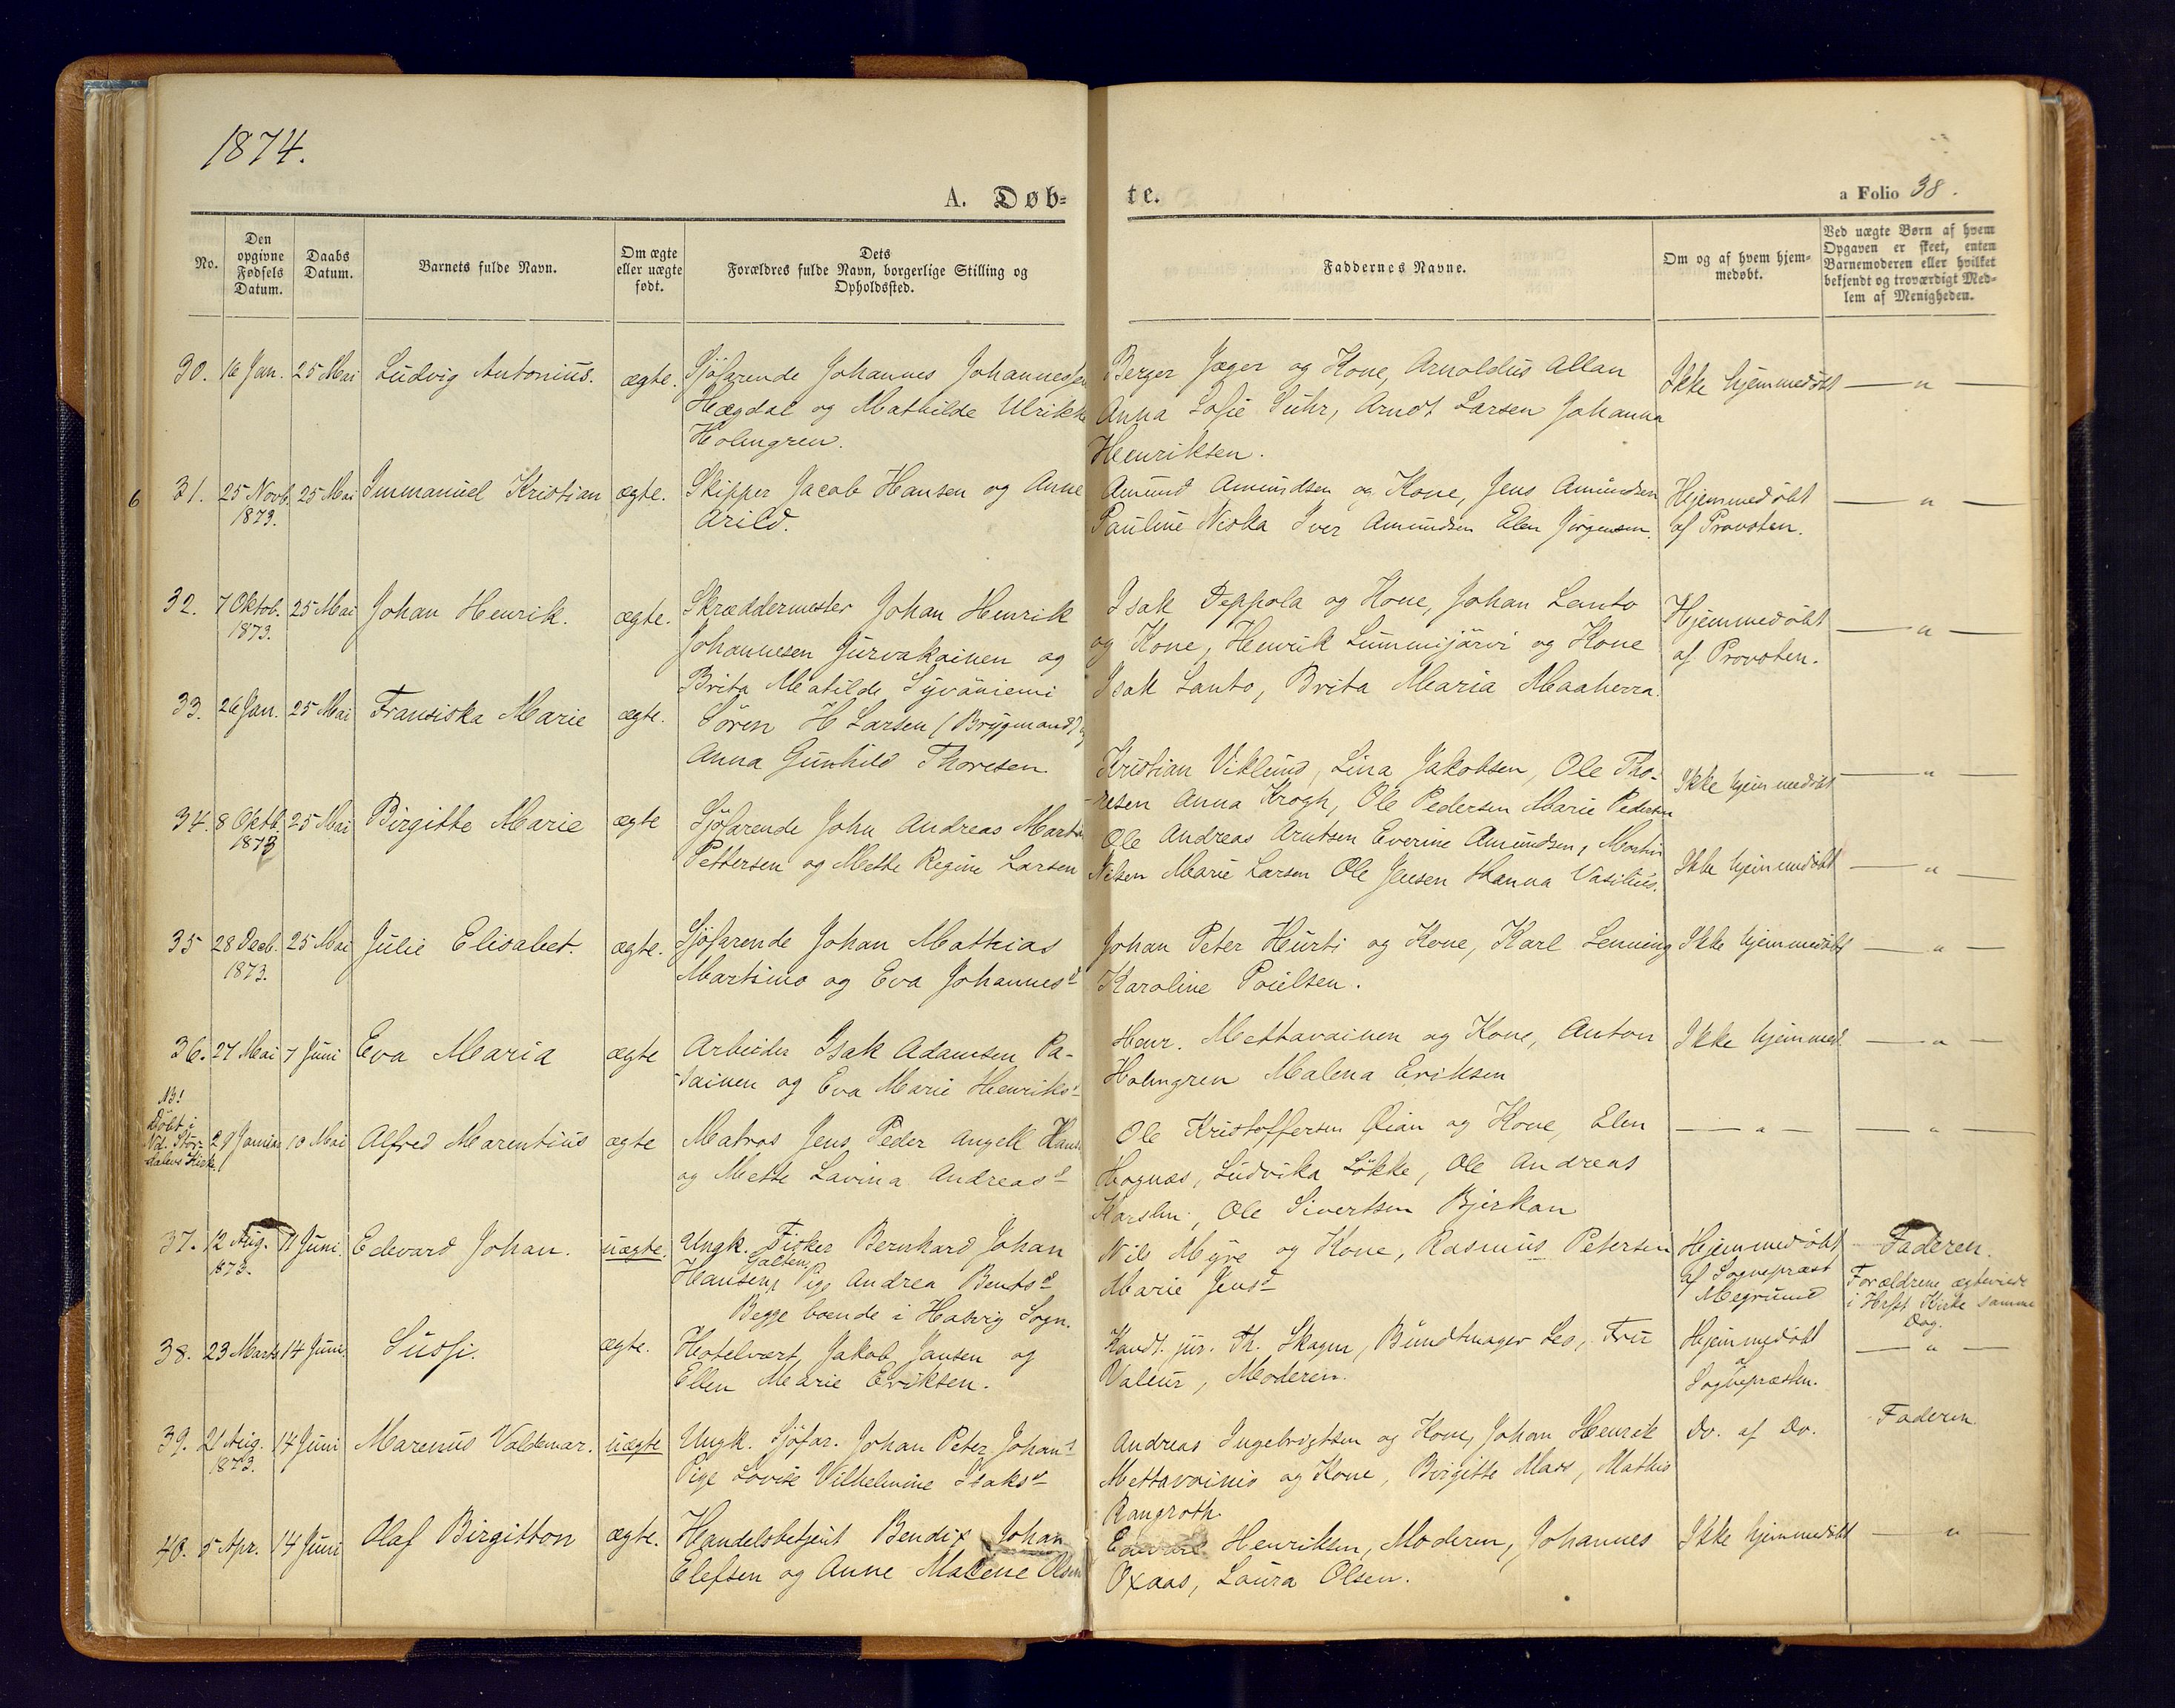 1874.
A. Døb=
te.
a Folio 38.
No.
Den
opgivne
Fødsels
Datum.
Daabs
Datum.
Barnets fulde Navn.
Om ægte
eller uægte
født.
Dets
Forældres fulde Navn, borgerlige Stilling og
Opholdssted.
Faddernes Navne.
Om og af hvem hjem-
medøbt.
Ved uægte Børn af hvem
Opgaven er skeet, enten
Barnemoderen eller hvilket
bekjendt og troværdigt Med-
lem af Menigheden.
30. 16 Jan. 25 Mai Ludvig Antonius. ægte. Sjöfarende Johannes Johannessen
Hægdal og Mathilde Ulrikke
Holmgren.
Berger Jæger og Kone, Arnoldus Allan
Anna Sofie Suhr, Arndt Larsen Johanna
Henriksen.
Ikke hjemmedöbt — " —
6 31. 25 Novb. 25 Mai Immanuel Kristian ægte. Skipper Jacob Hansen og Anne
1873.
Arild.
Amund Amundsen og Kone, Jens Amundsen
Pauline Niska Iver Amundsen Elen Jørgensen.
Hjemmedöbt — " —
af Provsten.
32. 7 Oktob. 25 Mai Johan Henrik. ægte. Skræddermester Johan Henrik
1873.
Johannesen Gurvakainen og
Brita Matilde Syväniemi
Isak Peppola og Kone, Johan Lanto
og Kone, Henrik Lummijärvi og Kone
Isak Lanto, Brita Maria Maaherra.
Hjemmedöbt — " —
af Provsten.
33. 26 Jan. 25 Mai Fransiska Marie ægte. Sören H Larsen (Brygmand) og
Anna Gunhild Thoresen.
Kristian Viklund, Lina Jakobsen, Ole Tho-
resen Anna Krogh, Ole Pedersen Marie Pedersen
Ikke hjemmedöbt — " —
34. 8 Oktb. 25 Mai Birgitte Marie ægte Sjöfarende John Andreas Martin
1873
Pettersen og Mette Regine Larsen
Ole Andreas Arntsen Everine Amundsen, Martin
Nilsen Marie Larsen Ole Jensen Hanna Vasilius.
Ikke hjemmedöbt — " —
35 28 Decb. 25 Mai Julie Elisabet. ægte. Sjöfarende Johan Mathias
1873.
Martimo og Eva Johannesd
Johan Peter Hurti og Kone, Karl Lenning
Karoline Poielsen.
Ikke hjemmedöbt — " —
36. 27 Mai 7 Juni Eva Maria ægte Arbeider Isak Adamsen Pa-
sainen og Eva Marie Henriksd
Henr. Mettavainen og Kone, Anton
Holmgren Malena Eriksen
Ikke hjemmed. — " —
NB!
Döbt i
Nd. Stör-
dalens Kirke. 29 Januar 10 Mai Alfred Marentius ægte Matros Jens Peder Angell Hansen
og Mette Lavina Andreasd
Ole Kristoffersen Öian og Kone, Elen
Hognæs, Ludvika Lökke, Ole Andreas
Karslen, Ole Sivertsen Bjerkan
— " — — " —
37. 12 Aug. 11 Juni. Edevard Johan. uægte. Ungk. Fisker Bernhard Johan
1873.
Galten
Hansen, Pige Andrea Bentsd
Begge boende i Hatvig Sogn.
Nils Myre og Kone, Rasmus Petersen
Marie Jensd
Hjemmedöbt
af Sognepræst
Magnund
Faderen.
Forældrene ægteviede
i Hrfst Kirke samme
Dag.
38. 23 Marts 14 Juni. Sussi. ægte. Hotelvært, Jakob Jansen og
Ellen Marie Eriksen.
Kand. jur. Th. Skagen, Bundtmager Leo, Fru
Valeur, Moderen.
Hjemmedöbt
af
Sognepræsten.
— " —
39. 21 Aug. 14 Juni Marenus Valdemar. uægte Ungk. Sjöfar. Johan Peter Johans
1873.
Pige Lovise Vilhelmine Isaksd
Andreas Ingebrigtsen og Kone, Johan Henrik
Mettavainio og Kone, Birgitte Mass, Mathis
Rangroth.
Do. af Do. Faderen
40. 5 Apr. 14 Juni Olaf Birgitton ægte. Handelsbetjent Bendix Johan
Elefsen og Anne Malene Olsen
Edvard Henriksen, Moderen, Johannes
Oxaas, Laura Olsen.
Ikke hjemmedöbt — " —